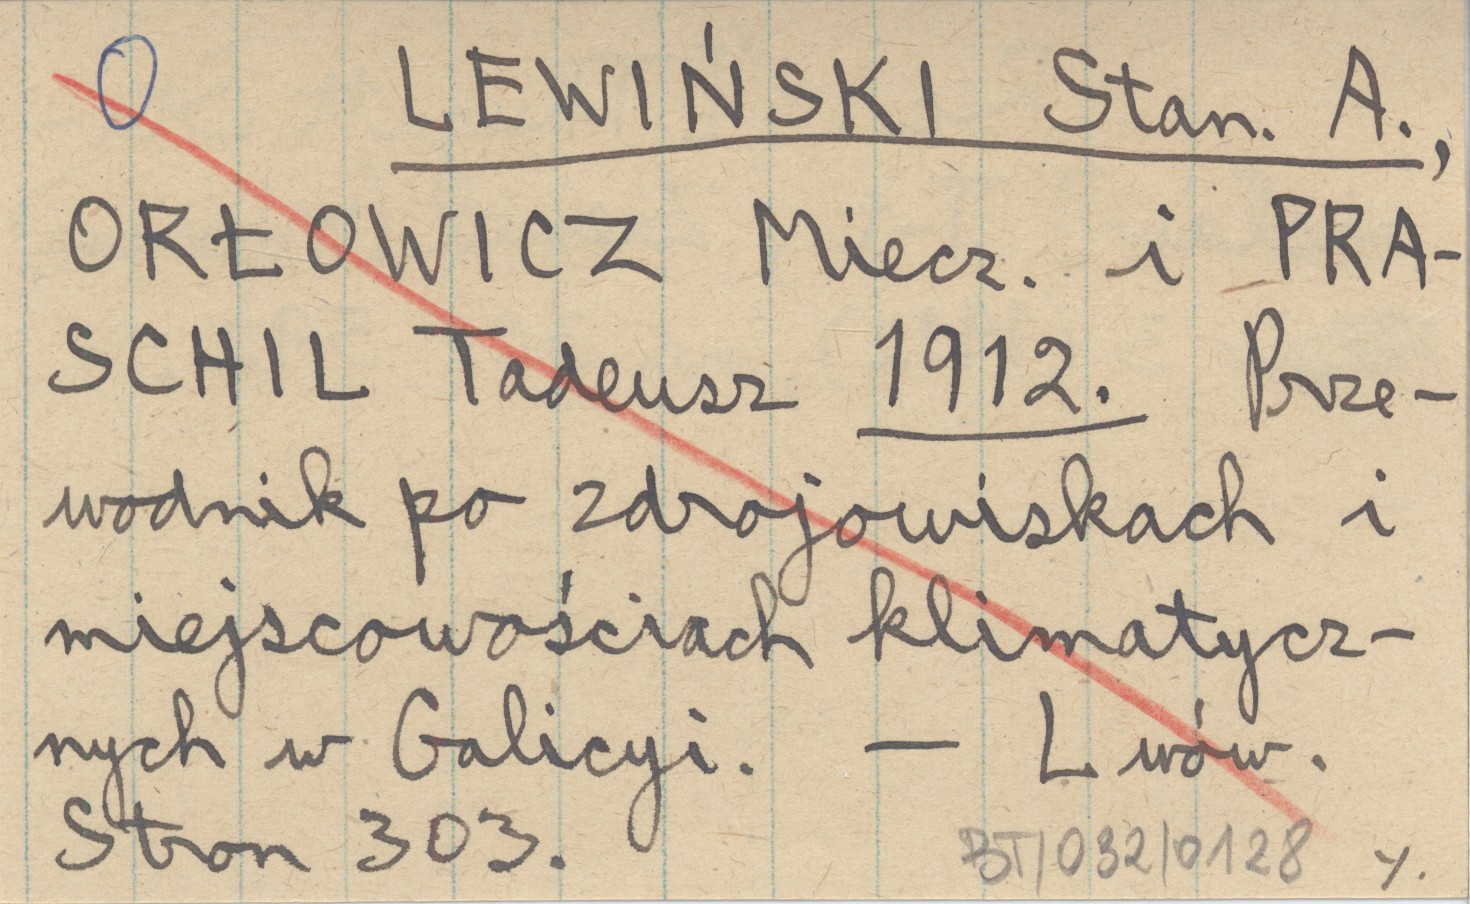 LEWIŃSKI Stan. A.,
ORŁOWICZ Miecz. i PRA-
SCHIL Tadeusz 1912. Prze-
wodnik po zdrojowiskach i
miejscowościach klimatycz-
nych w Galicyi. — Lwów.
Stron 303.
BT/032/0128 y.